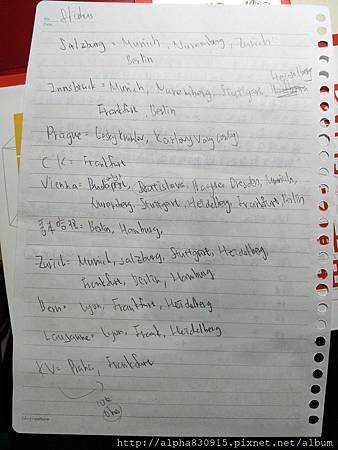 Salzburg = Munich, Nuremberg, Zurich
Berlin
Heidelberg
Innsbruck = Munich, Nuremberg, Stuttgart
Frankfurt, Berlin
Prague = Cesky Krumlov, Karlovy Vary (only)
CK = Frankfurt
Vienna = Budapest, Bratislava, Prague, Dresden, Munich,
Nuremberg, Stuttgart, Heidelberg, Frankfurt, Berlin
Berlin, Hamburg,
Zurich = Munich, Salzburg, Stuttgart, Heidelberg
Frankfurt, Berlin, Hamburg
Bern = Lyon, Frankfurt, Heidelberg
Lausanne = Lyon, Frank, Heidelberg
KV = Praha, Frankfurt
http://alpha830915.pixnet.net/album